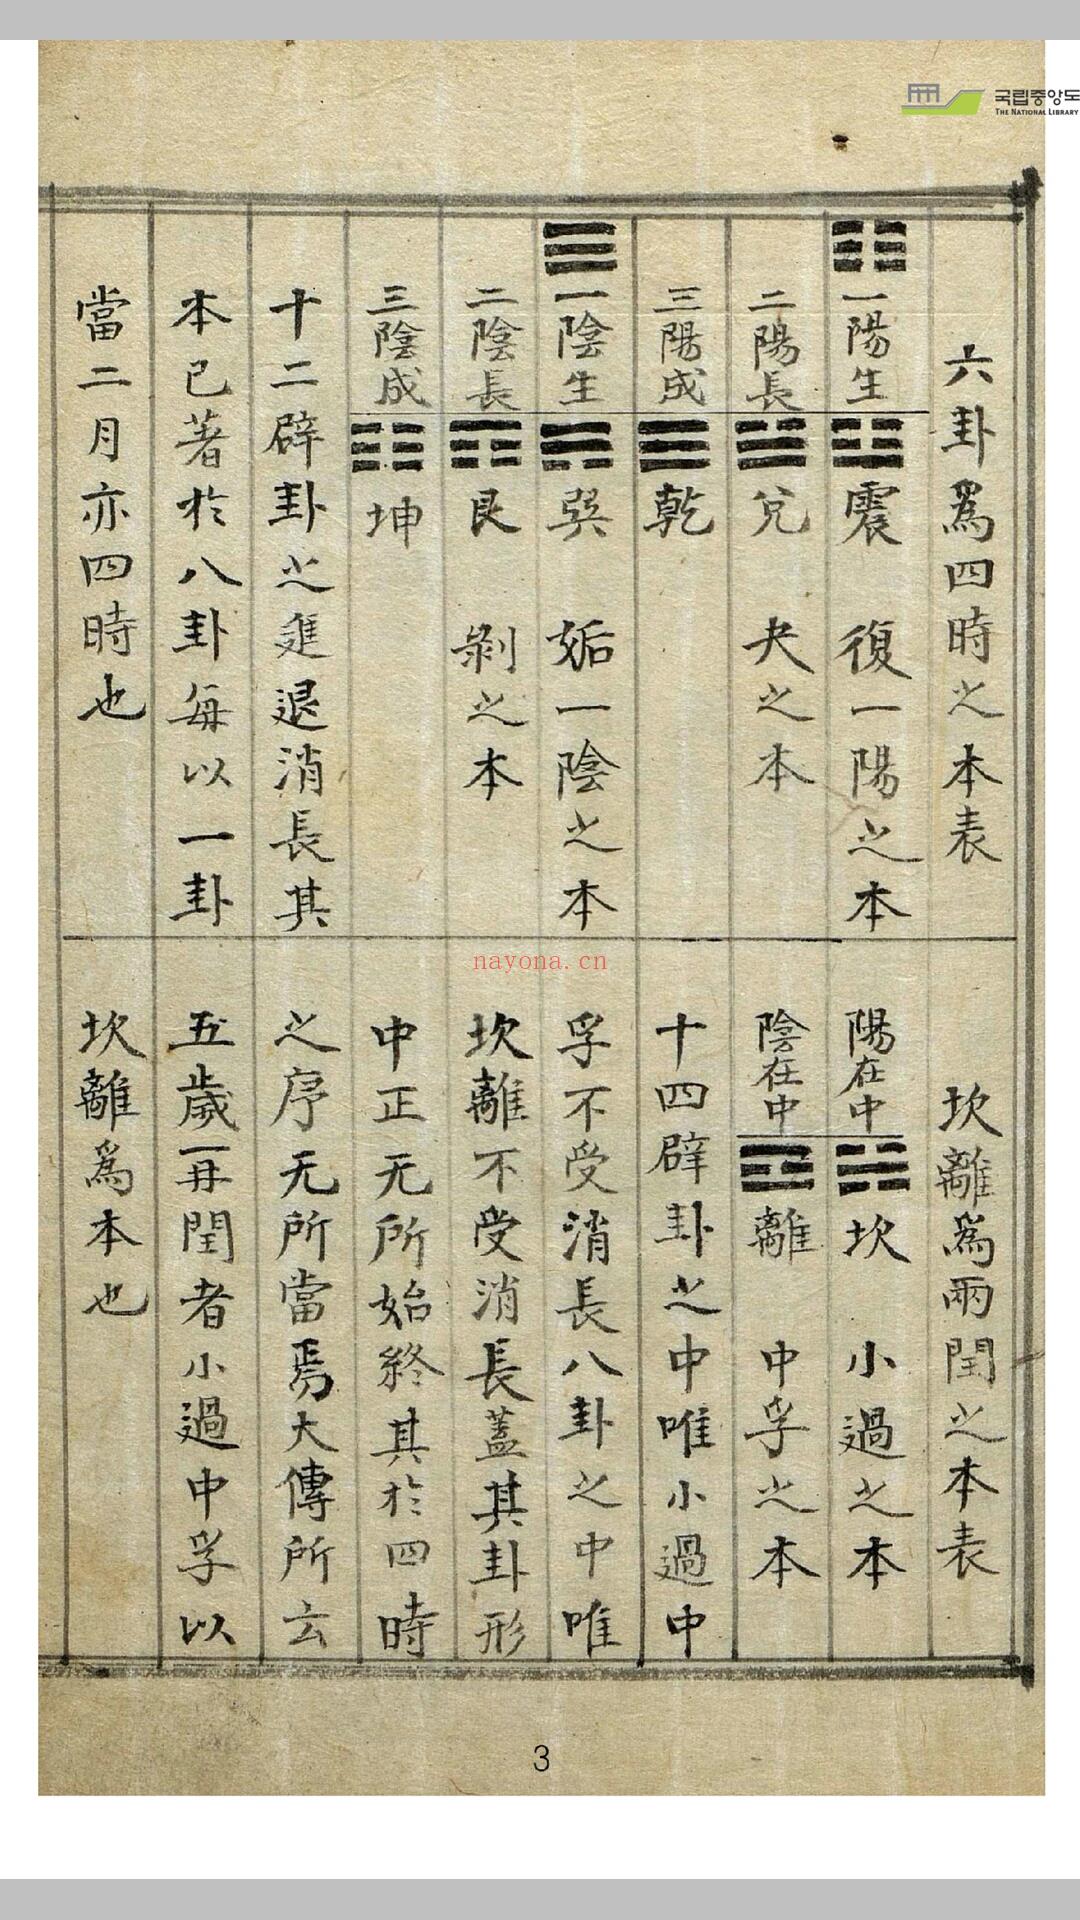 국립중앙도
THE NATIONAL LIBRARY
六卦爲四時之本表
☷一陽生☳震 復一陽之本
二陽長☱兌 夬之本
三陽成☰乾
☰一陰生☴巽 姤一陰之本
二陰長☶艮 剝之本
三陰成☷坤
十二辟卦之進退消長其
本已著於八卦每以一卦
當二月亦四時也
坎離爲兩閏之本表
陽在中☵坎 小過之本
陰在中☲離 中孚之本
十四辟卦之中唯小過中
孚不受消長八卦之中唯
坎離不受消長蓋其卦形
中正无所始終其於四時
之序无所當焉大傳所云
五歲再閏者小過中孚以
坎離爲本也
nayona.cn
3